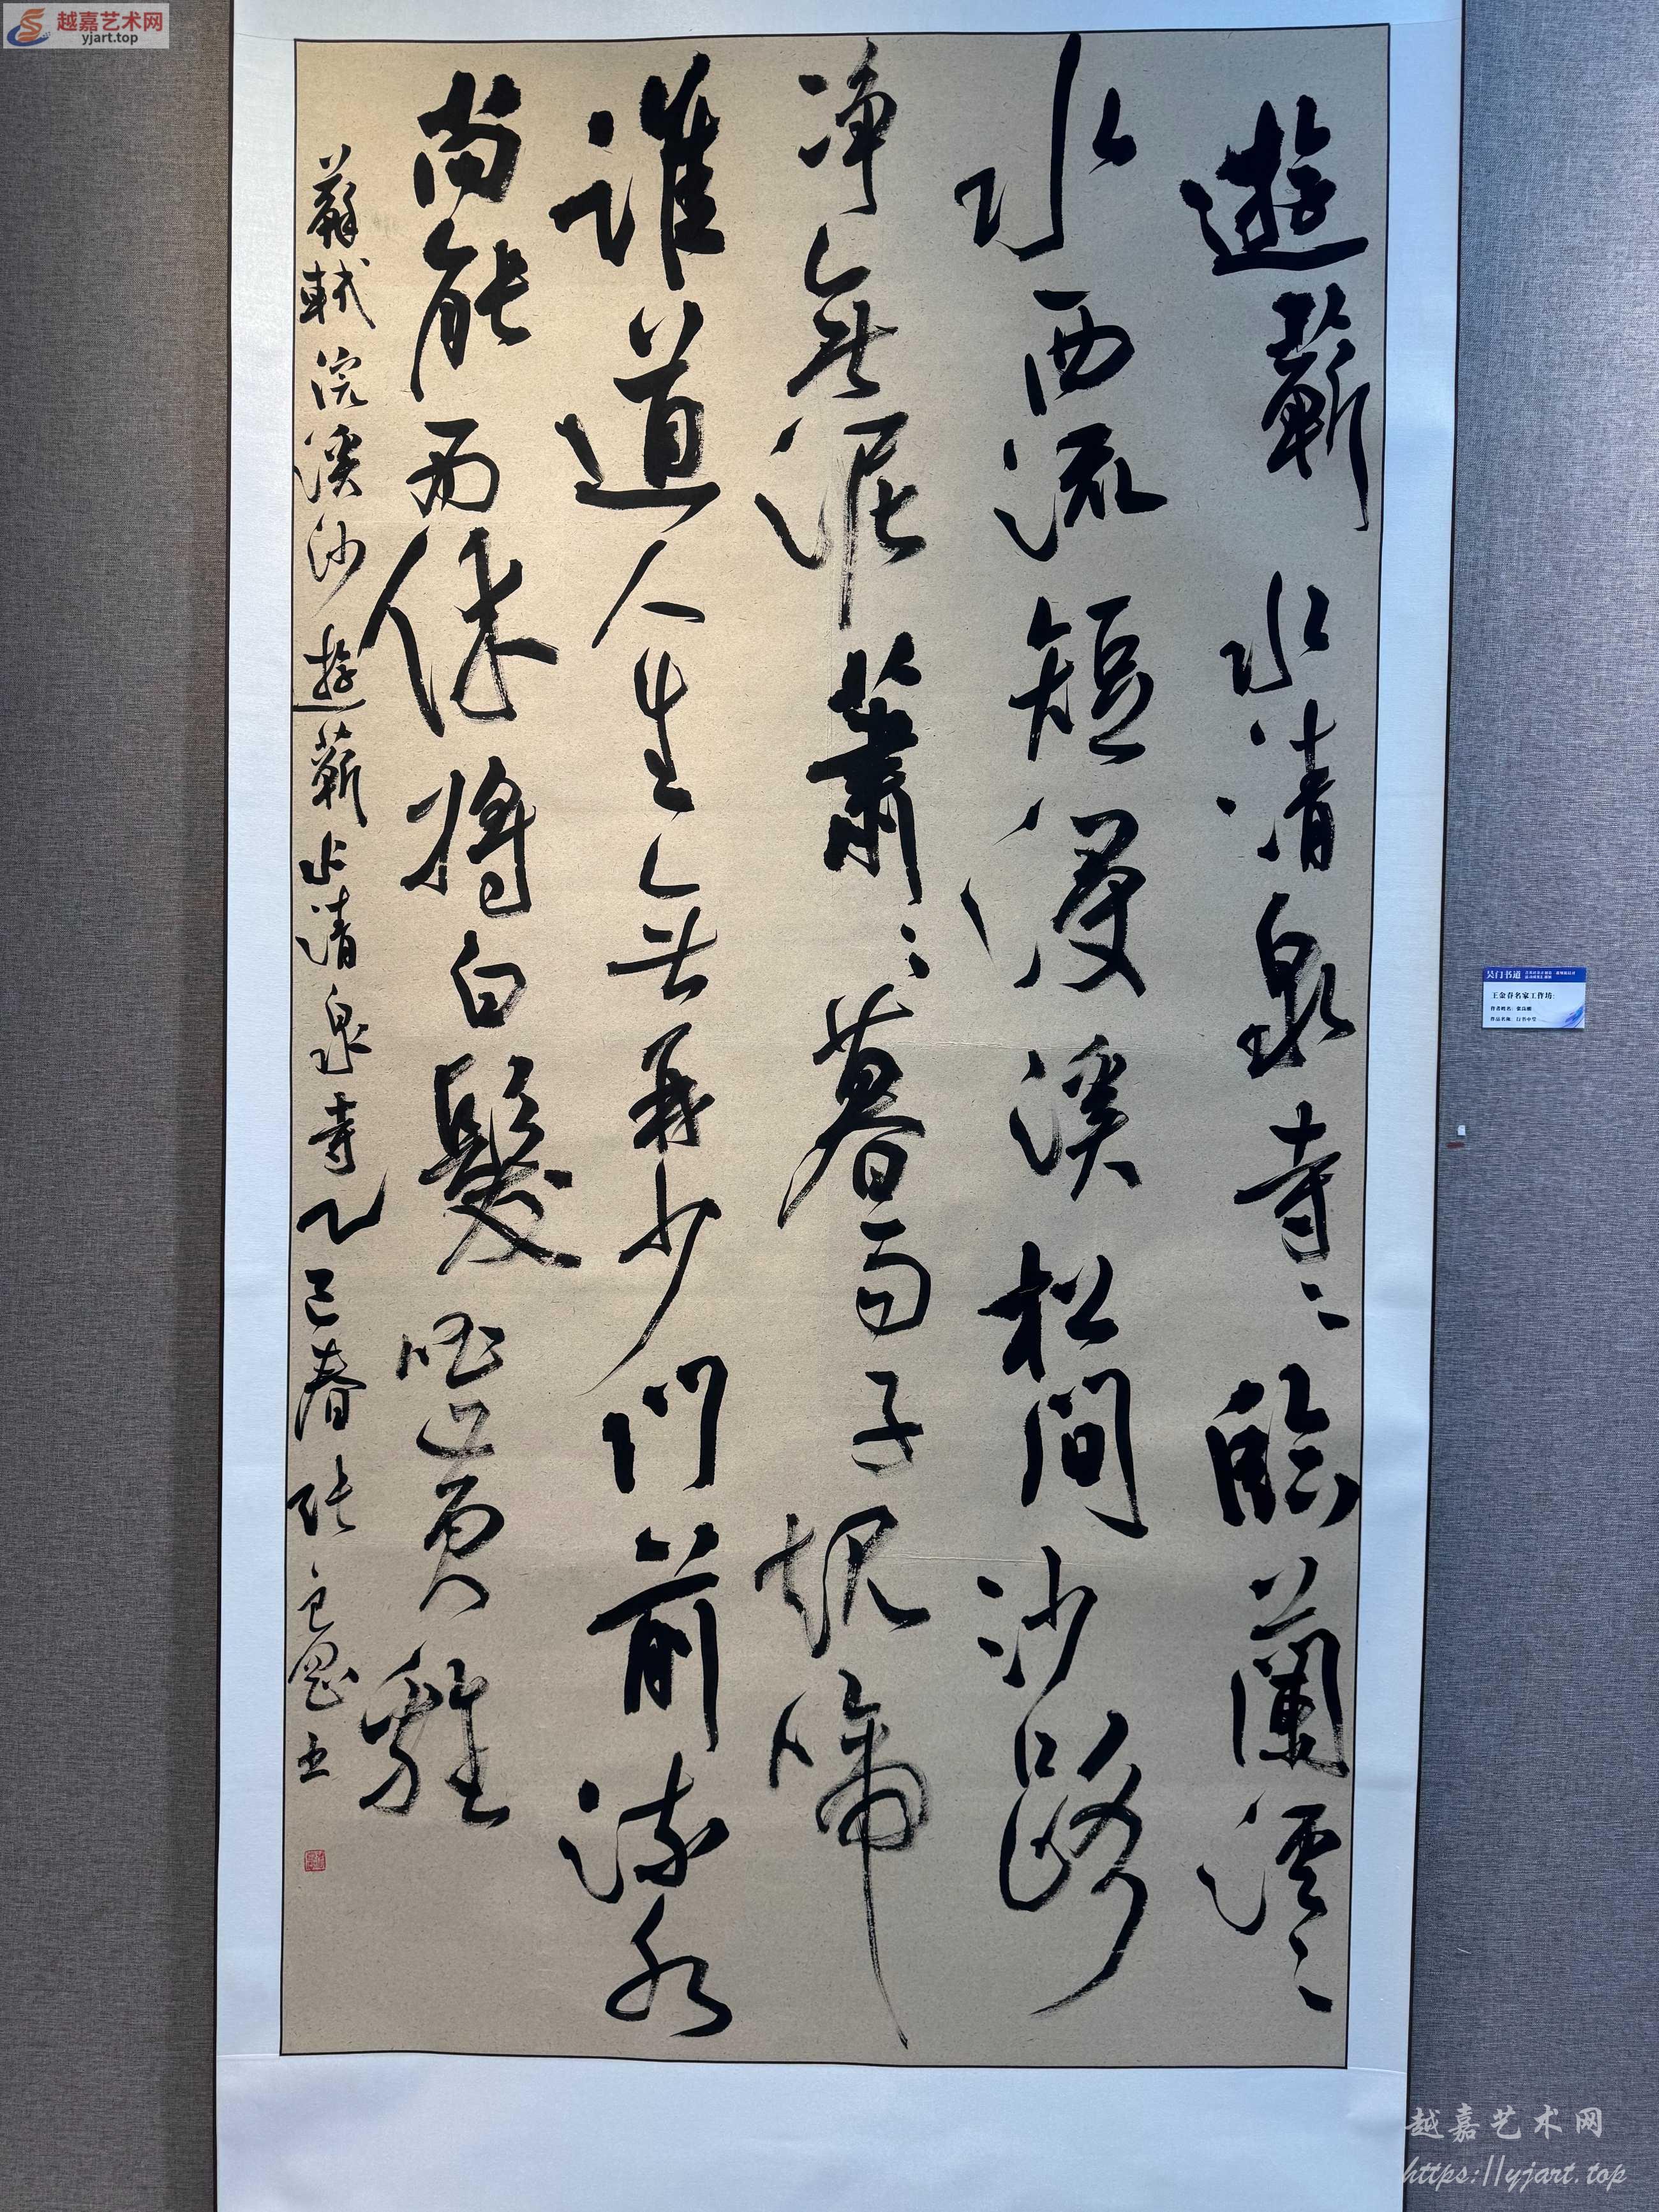 越嘉艺术网
yjart.top
遊蘄水清泉寺〻臨蘭溪〻
水西流短浸溪松間沙路
净無泥蕭〻暮雨子規啼
誰道人生無再少門前流水
尚能西休將白髮唱黄雞
蘇軾浣溪沙遊蘄水清泉寺乙巳春張
吴门书道
王金春名家工作坊:
作者姓名:
作品名称:行书中堂
越嘉艺术网
https://yjart.top